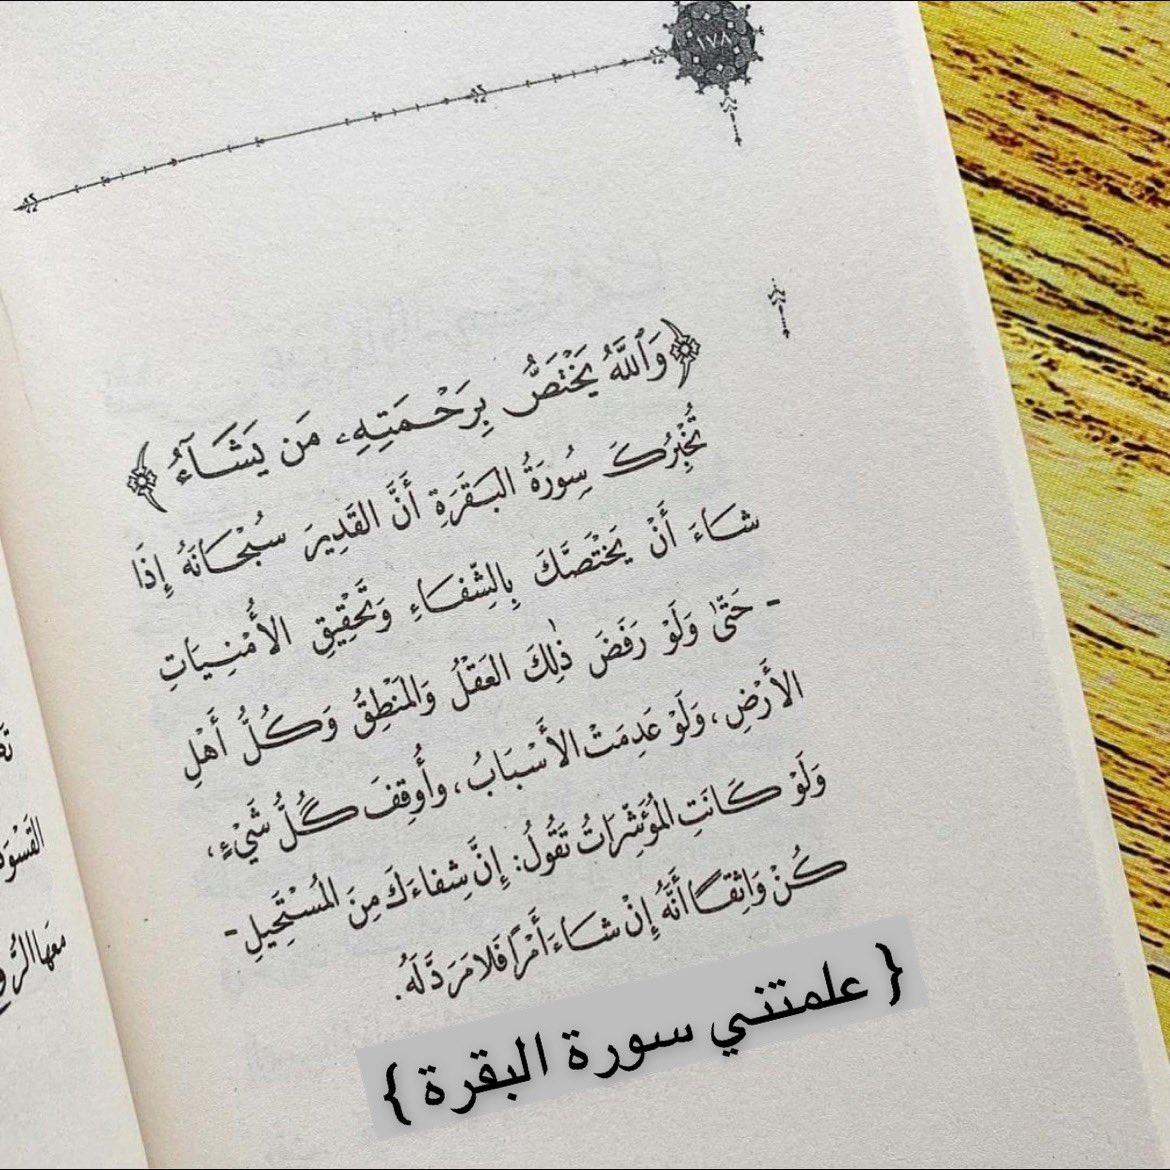 ١٧٨
﴿وَٱللَّهُ يَخْتَصُّ بِرَحْمَتِهِۦ مَن يَشَآءُ﴾
تُخْبِرُكَ سُورَةُ البَقَرَةِ أَنَّ القَدِيرَ سُبْحَانَهُ إِذَا
شَاءَ أَنْ يَخْتَصَّكَ بِالشِّفَاءِ وَتَحْقِيقِ الأُمْنِيَاتِ
- حَتَّى وَلَوْ رَفَضَ ذٰلِكَ العَقْلُ وَالمَنْطِقُ وَكُلُّ أَهْلِ
الأَرْضِ، وَلَوْ عَدِمَتْ الأَسْبَابُ، وَأُوقِفَ كُلُّ شَيْءٍ،
وَلَوْ كَانَتِ المُؤَشِّرَاتُ تَقُولُ: إِنَّ شِفَاءَكَ مِنَ المُسْتَحِيلِ -
كُنْ وَاثِقًا أَنَّهُ إِنْ شَاءَ أَمْرًا فَلَا مَرَدَّ لَهُ.
{ علمتني سورة البقرة }
القَسْوَة
معها الرُّ